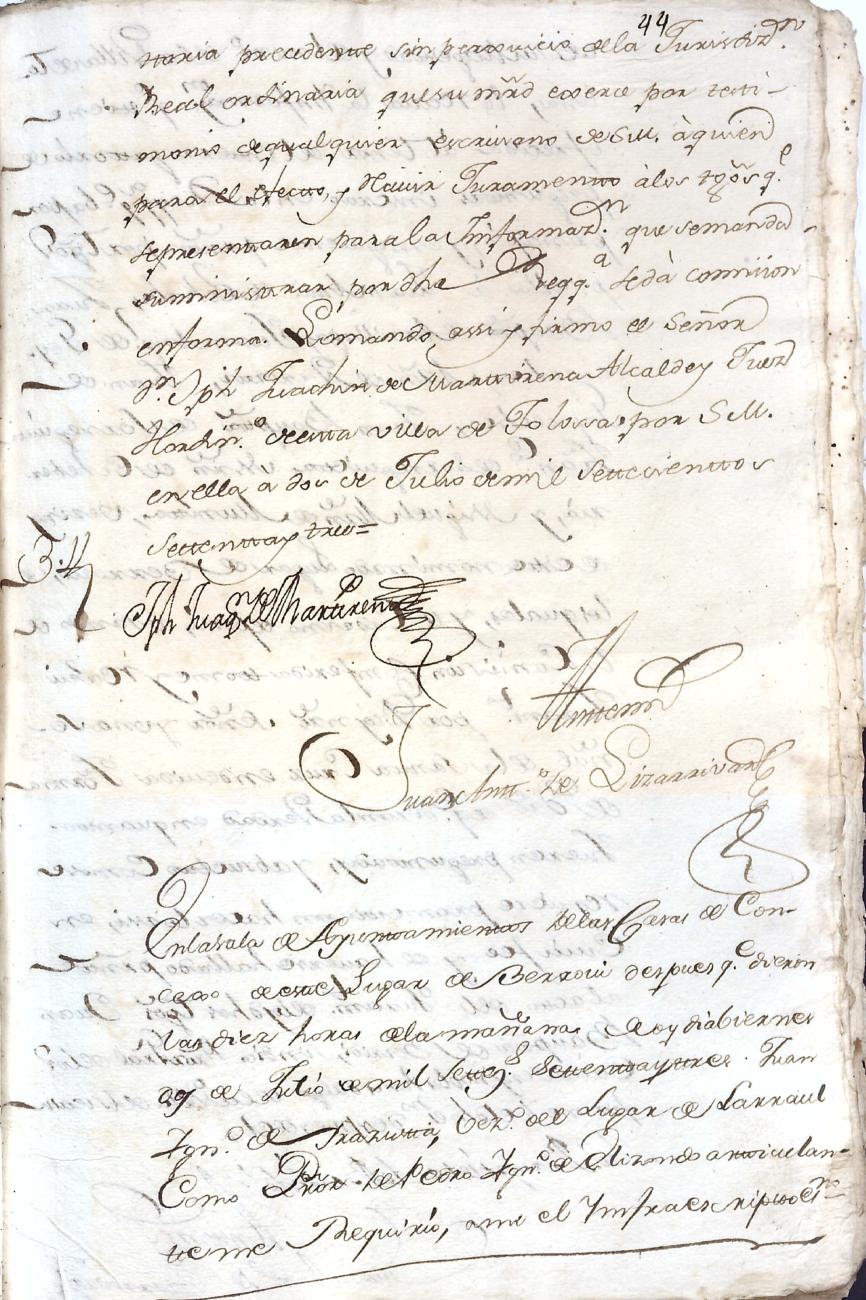 44
ttoria precedente sin perxuicio de la Jurisdizn.
Real ordinaria que su mrd exerce por testi-
monio de qualquier escrivano de S.M. à quien
para el efecto, y recivir Juramento à los tgos q.e
se presenttaren para la Informazn. que se manda
suministrar por dha Reqq.a se dà comision
en forma. Lo mando assi y firmo el Señor
Dn. Jph Juachin de Marttirena Alcalde y Juez
Hordin.o de esta villa de Tolossa por S.M.
en ella á dos de Julio de mil Settecienttos
settentta y tres=
Jph Juaqn. de Martirena
Antte mi
Juan Antt.o de Lizarrivar
En la sala de Ayunttamienttos de las Casas de Con-
cexo de este Lugar de Berrovi despues q.e dieron
las diez horas de la mañana de oy dia biernes
de Julio de mil Settez.s Settentta y tres. Juan
Ygn.o de Irazusta, vez.o del Lugar de Larraul
Como Pror. de Pedro Ygn.o de Elizondo antticulan-
tte me Requirió, ante el Ynfraescriptto es.no